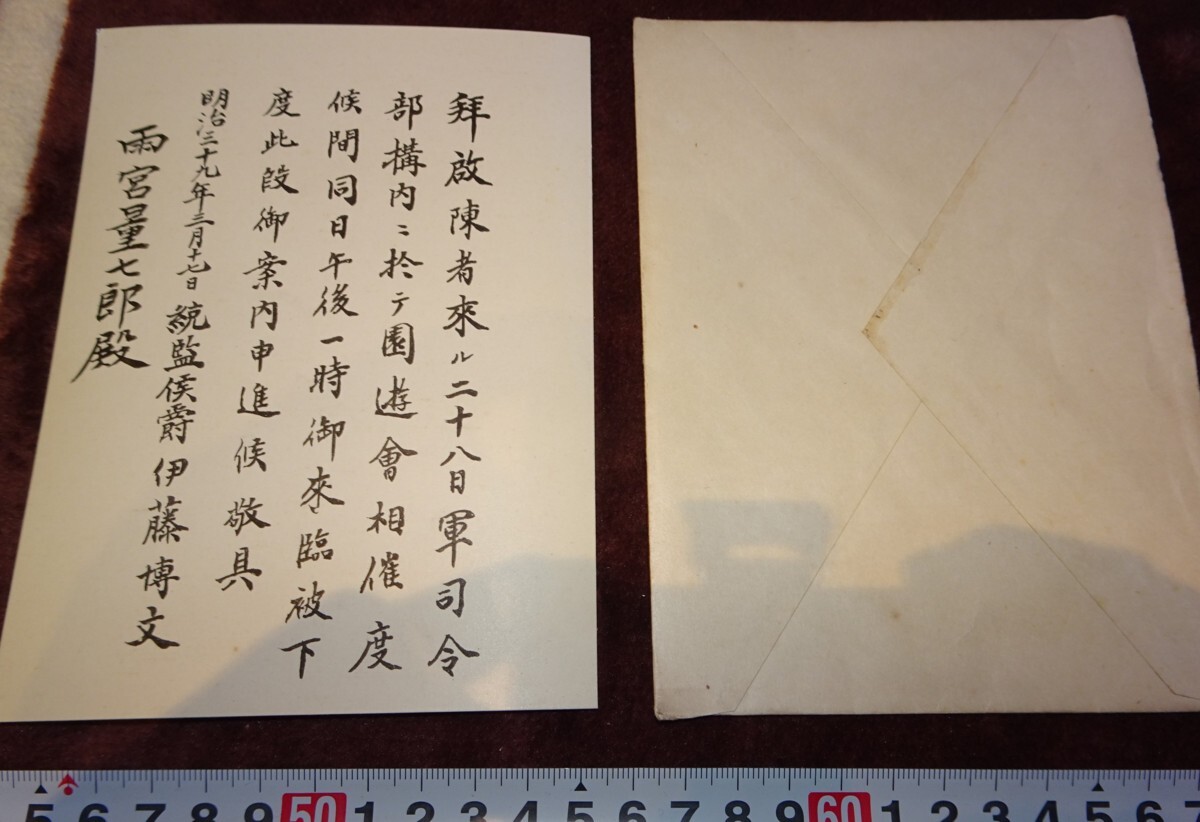 拜啟陳者來ル二十八日軍司令
部構内ニ於テ園遊會相催度
候間同日午後一時御來臨被下
度此段御案内申進候敬具
明治三十九年三月十七日
統監侯爵伊藤博文
雨宮量七郎殿
5 6 7 8 9 50 1 2 3 4 5 6 7 8 9 60 1 2 3 4 5 6 7